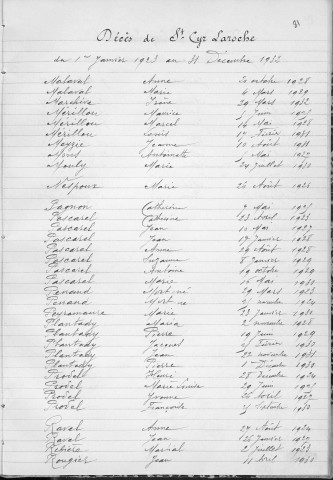 31
Décès de St Cyr Laroche
du 1er janvier 1923 au 31 Décembre 1932
Malaval Anne 20 octobre 1928
Malaval Marie 4 Mars 1929
29 Mars 1932
Mérillon Maurice Juin
Mérillon Marcel 16 Mai 1928
Mérillon Louis 17 février 1931
Meyzie Jeanne 10 Août 1931
Antoinette 1 Mai
Marie 24 Juillet 1930
Nespoux Marie 26 Août 1926
Pagnon Catherine 7 Mai 1925
Pascarel Catherine 23 Avril 1923
Pascarel Jean 11 Mai 1927
Pascarel Jean 17 Janvier 1928
Pascarel Anne 26 Août 1928
Pascarel Suzanne 8 Janvier 1929
Pascarel Antoine 19 octobre 1929
Pascarel Marie 16 Mai 1931
Penaud Mort né 29 Mars 1923
Penaud Mort né novembre 1924
Peyramaure Marie 23 Janvier 1928
Plantady Maria 2 novembre 1928
Plantady Pierre 19 Juin 1929
Plantady Jacques février 1930
Plantady Jean 22 novembre 1931
Plantady Pierre Décembre 1931
Prodel 28 décembre 1924
Prodel Marie Louise 29 Juin 1925
Prodel Yvonne 26 Avril
Prodel Françoise octobre
Ravel Anne 27 Août 1924
Ravel Jean 26 Janvier 1929
Martial 2 Juillet 1923
Rougier Jean 11 Avril